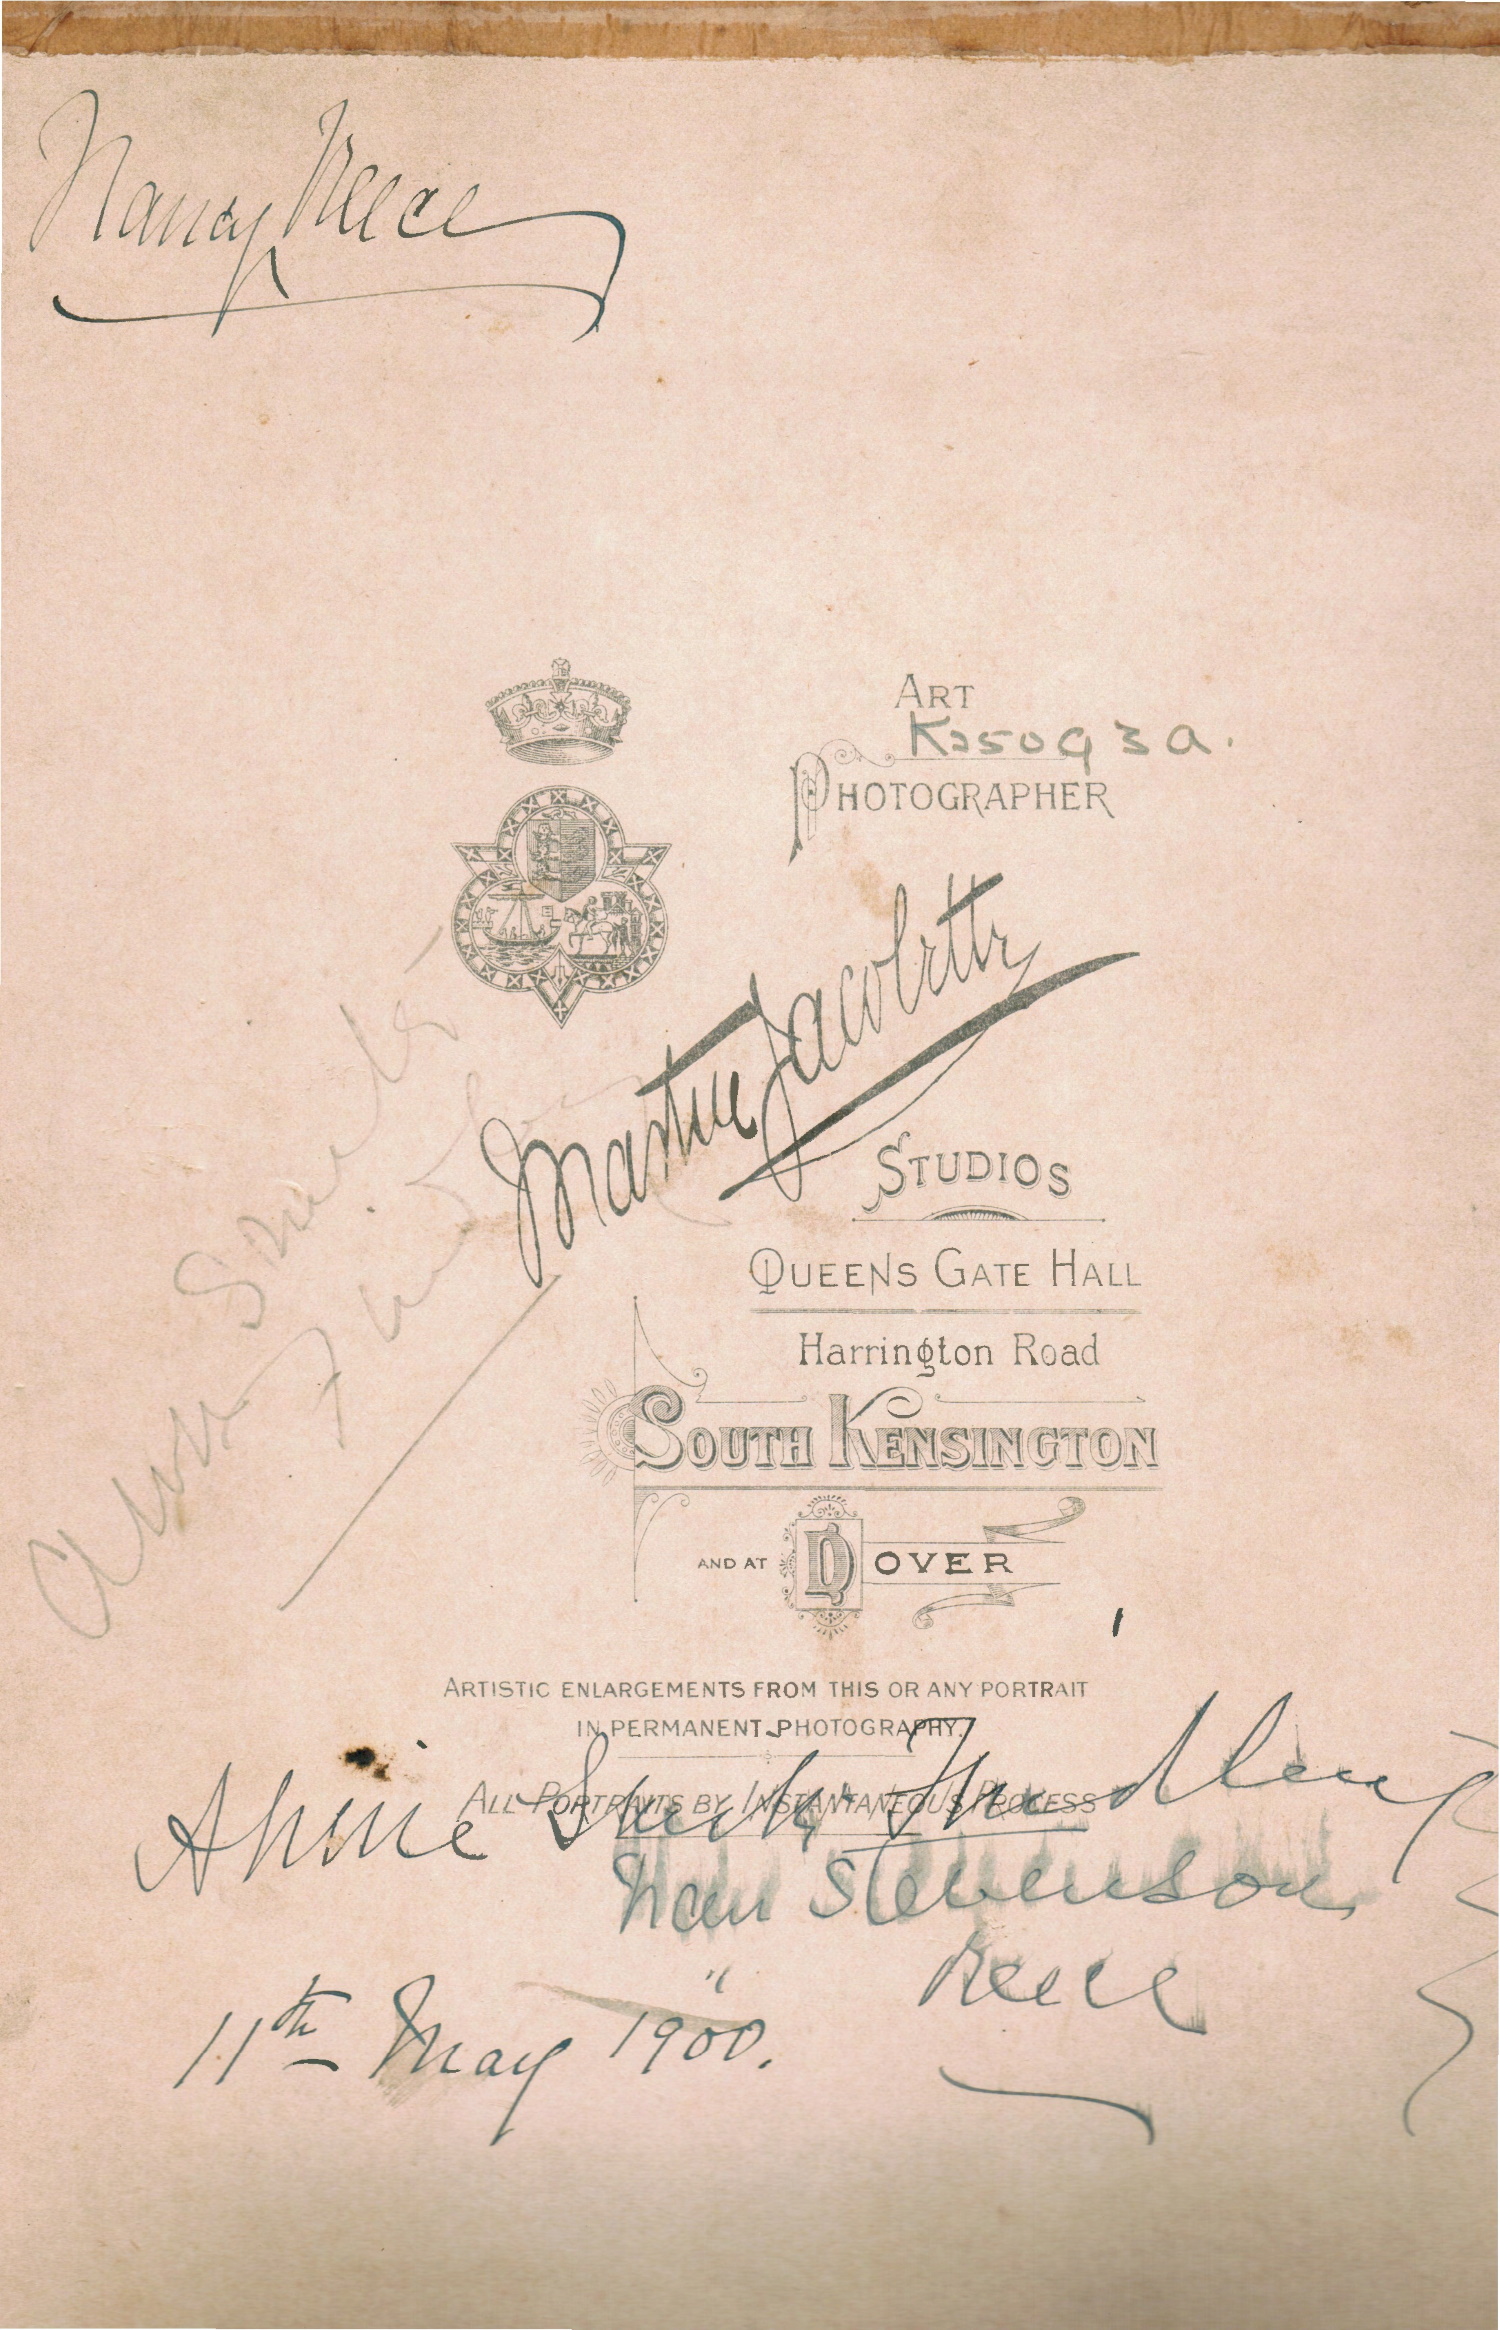 Nancy Reece
ART
K25093a.
PHOTOGRAPHER
Martin Jacolette
STUDIOS
QUEENS GATE HALL
Harrington Road
SOUTH KENSINGTON
AND AT DOVER
ARTISTIC ENLARGEMENTS FROM THIS OR ANY PORTRAIT
IN PERMANENT PHOTOGRAPHY.
ALL PORTRAITS BY INSTANTANEOUS PROCESS
Annie Smith
Nan Stevenson
Reece
11th May 1900.